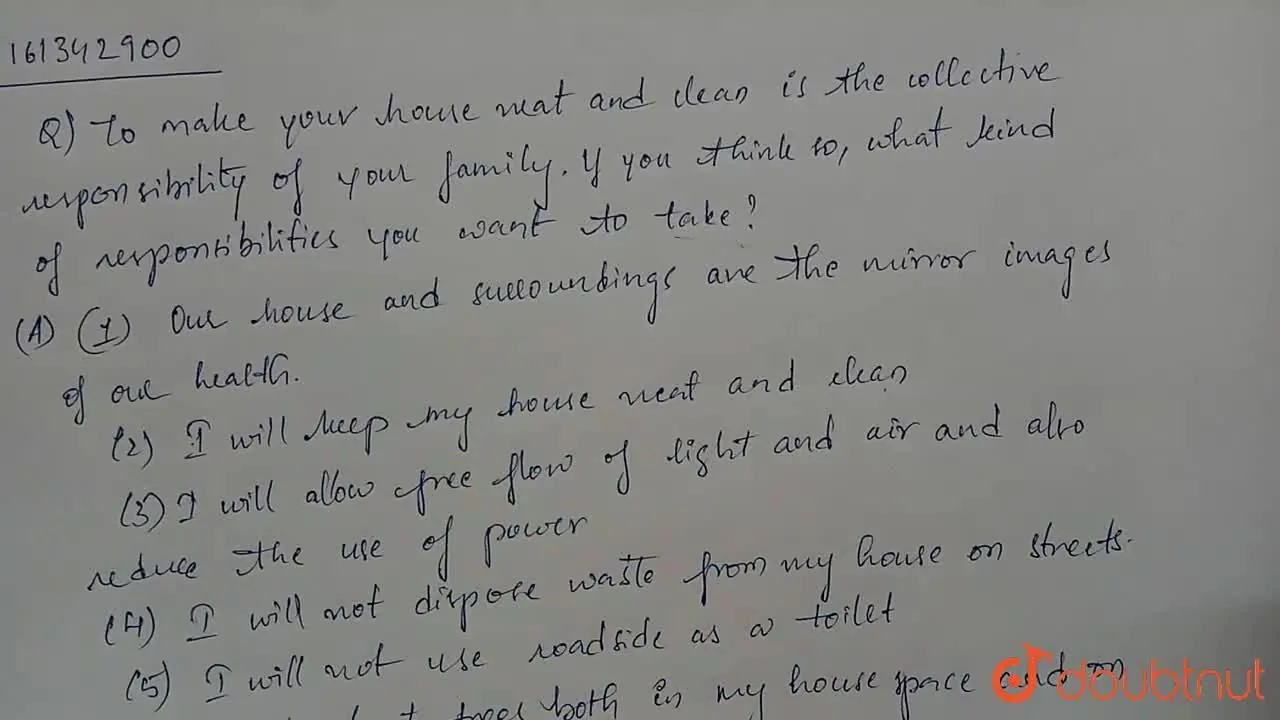 161342900
Q) To make your house neat and clean is the collective
responsibility of your family. If you think so, what kind
of responsibilities you want to take?
(A) (1) Our house and surroundings are the mirror images
of our health.
(2) I will keep my house neat and clean
(3) I will allow free flow of light and air and also
reduce the use of power
(4) I will not dispose waste from my house on streets.
(5) I will not use roadside as a toilet
trees both in my house space and on
doubtnut